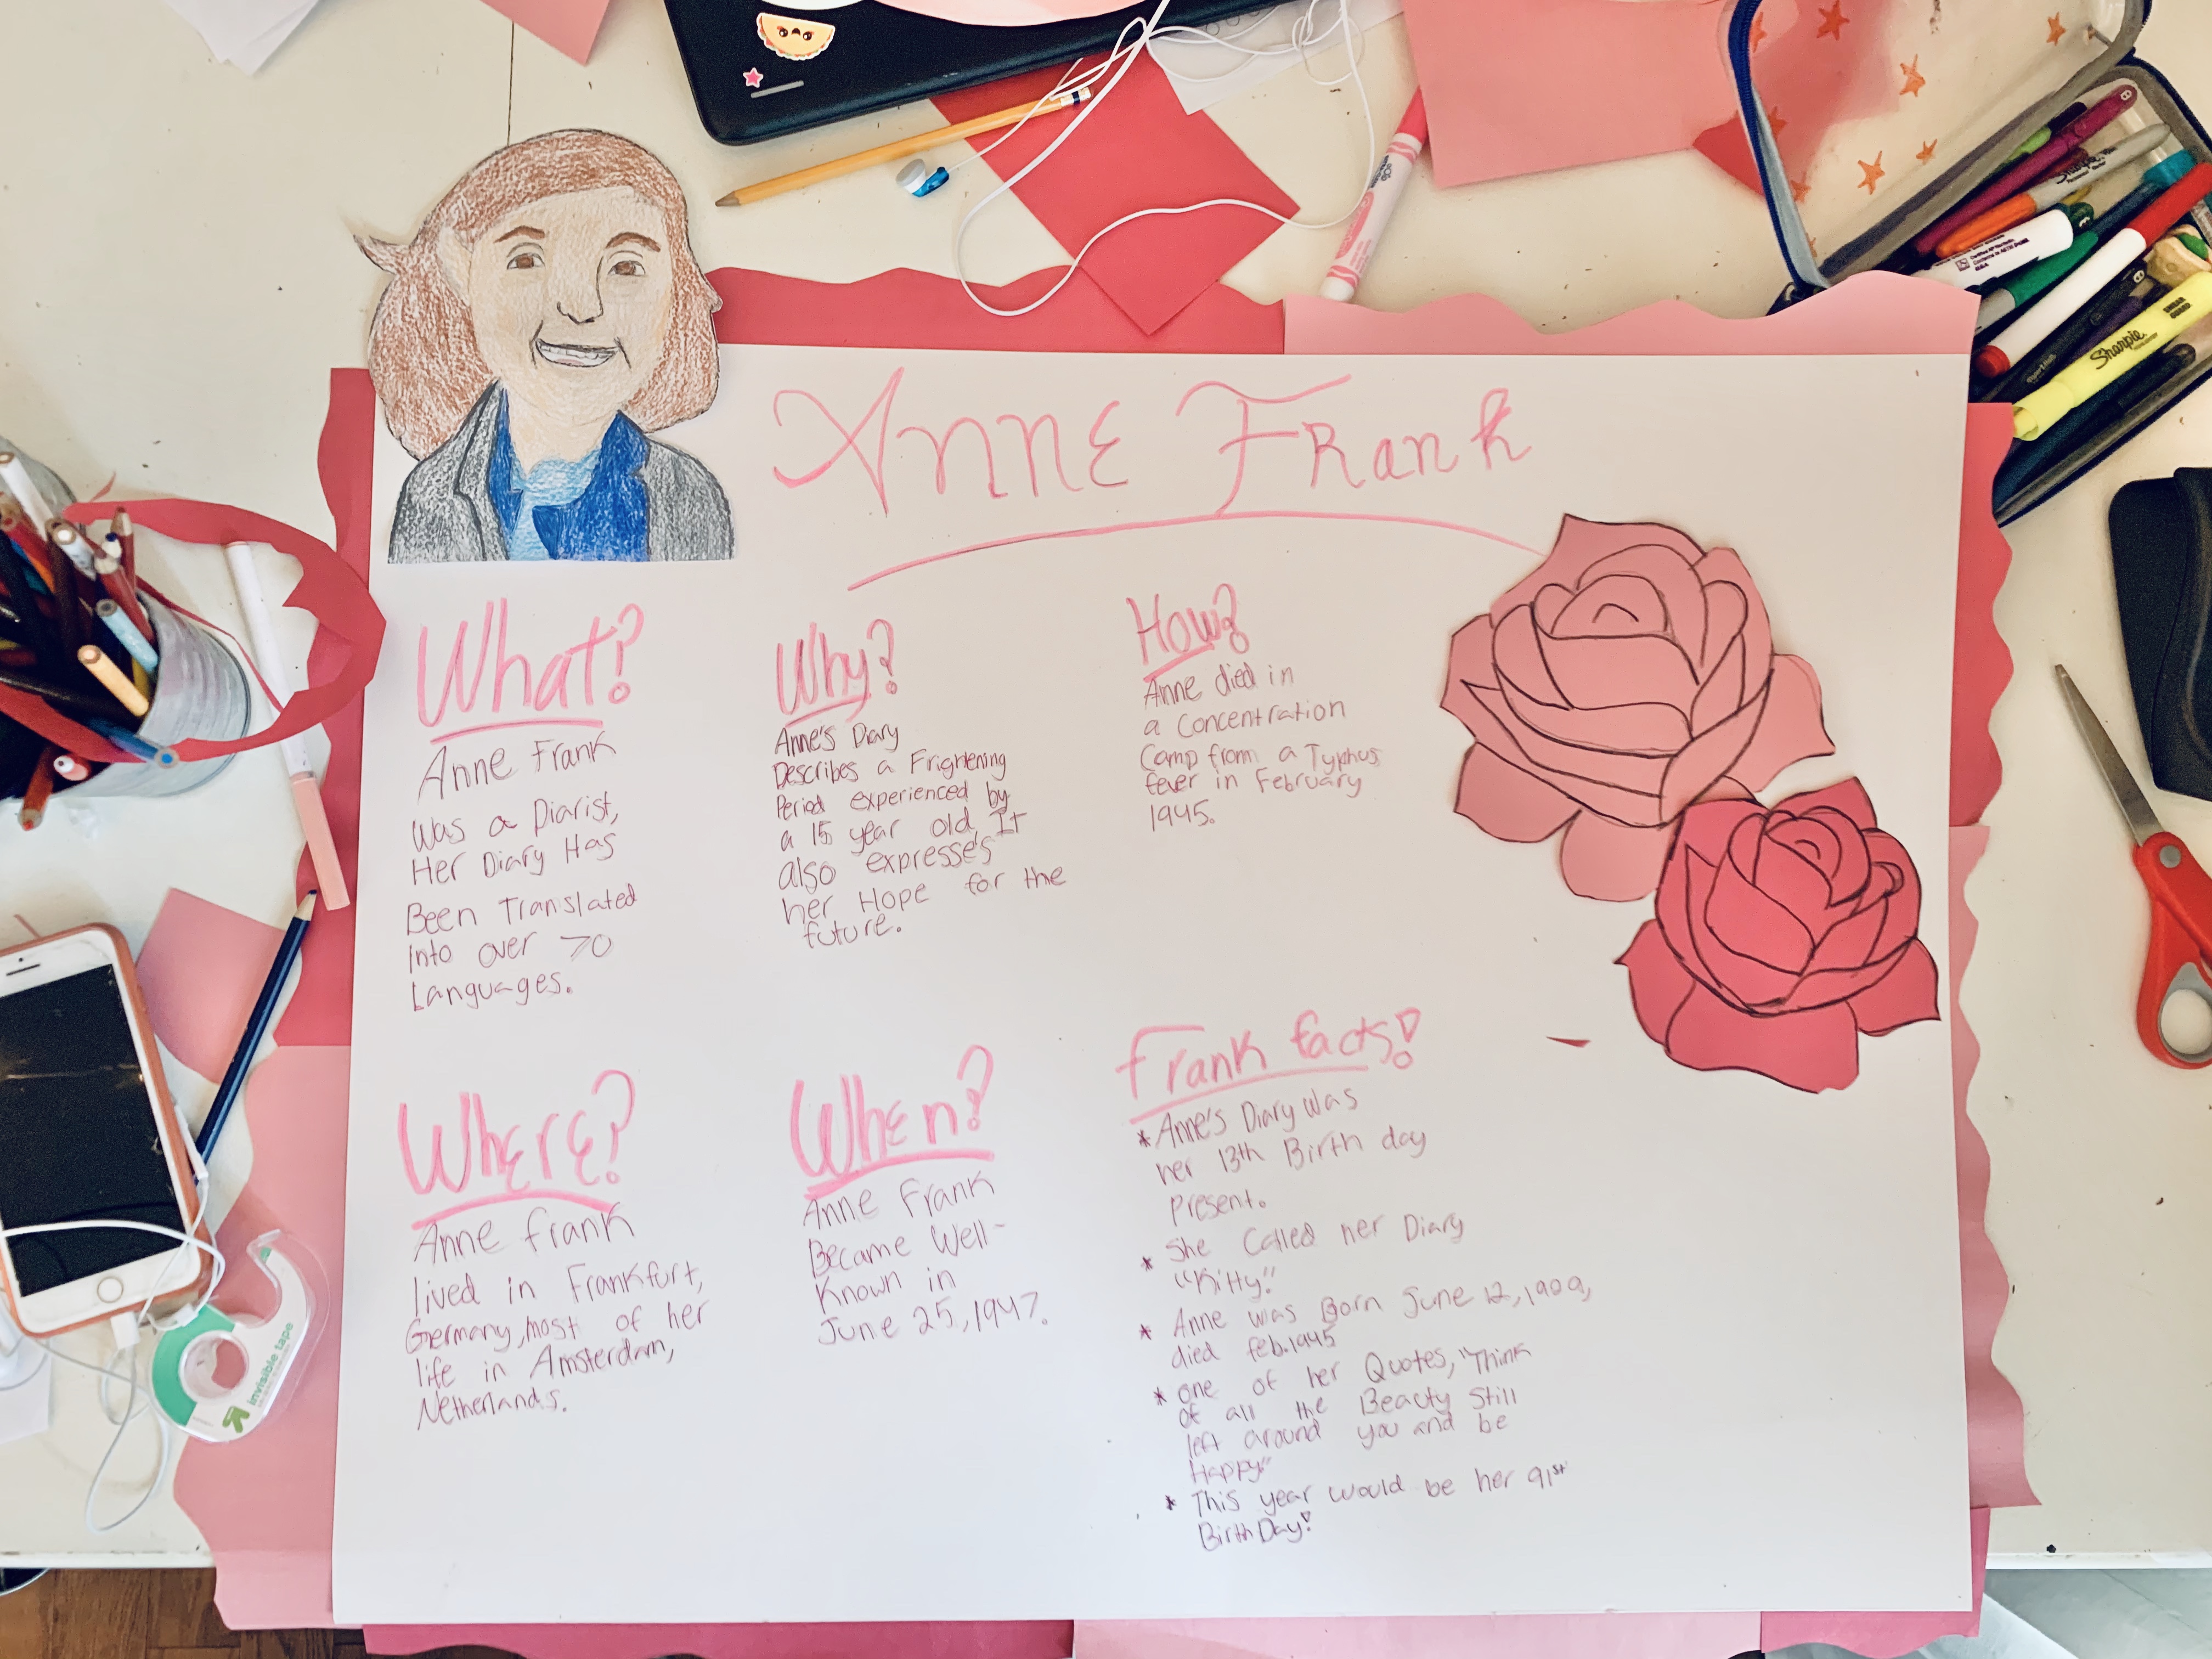 Anne Frank
What?
Anne Frank
was a Diarist,
Her Diary Has
Been Translated
Into over 70
Languages.
Why?
Anne's Diary
Describes a Frightening
Period experienced by
a 15 year old, It
also expresses
her Hope for the
future.
How?
Anne died in
a concentration
Camp from a Typhus
fever in February
1945.
Where?
Anne frank
lived in Frankfurt,
Germany, most of her
life in Amsterdam,
Netherlands.
When?
Anne Frank
Became Well-
Known in
June 25, 1947.
Frank facts!
* Anne's Diary was
her 13th Birth day
present.
* She Called her Diary
"Kitty."
* Anne was Born June 12, 1929,
died feb. 1945
* One of her Quotes, "Think
of all the Beauty Still
left around you and be
Happy"
* This year would be her 91st
BirthDay!
invisible tape
Sharpie
Sharpie
SMEAR GUARD